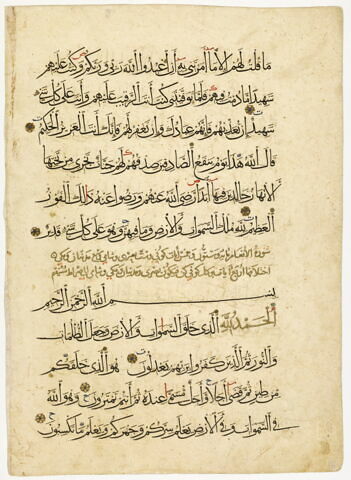 ما قلت لهم الا ما امرتني به ان اعبدوا الله ربي وربكم وكنت عليهم
شهيدا ما دمت فيهم فلما توفيتني كنت انت الرقيب عليهم وانت على كل شئ
شهيد ان تعذبهم فانهم عبادك وان تغفر لهم فانك انت العزيز الحكيم
قال الله هذا يوم ينفع الصادقين صدقهم لهم جنات تجري من تحتها
الانهار خالدين فيها ابدا رضي الله عنهم ورضوا عنه ذلك الفوز
العظيم لله ملك السموات والارض وما فيهن وهو على كل شئ قدير
سورة الانعام مائة وستون
بسم الله الرحمن الرحيم
الحمد لله الذي خلق السموات والارض وجعل الظلمات
والنور ثم الذين كفروا بربهم يعدلون هو الذي خلقكم
من طين ثم قضى اجلا واجل مسمى عنده ثم انتم تمترون وهو الله
في السموات وفي الارض يعلم سركم وجهركم ويعلم ما تكسبون